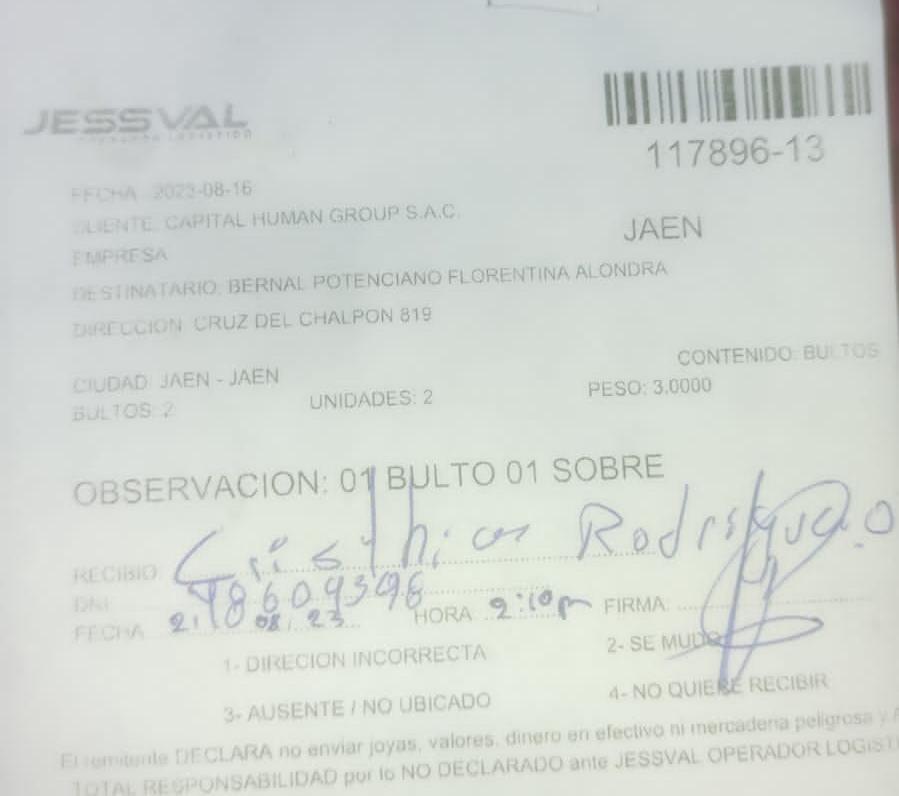 JESSVAL
OPERADOR LOGISTICO
117896-13
FECHA 2023-08-16
CLIENTE: CAPITAL HUMAN GROUP S.A.C.
JAEN
EMPRESA
DESTINATARIO: BERNAL POTENCIANO FLORENTINA ALONDRA
DIRECCION CRUZ DEL CHALPON 819
CONTENIDO: BULTOS
CIUDAD: JAEN - JAEN
BULTOS: 2 UNIDADES: 2 PESO: 3.0000
OBSERVACION: 01 BULTO 01 SOBRE
RECIBIO: Rodrigue.o
DNI
FECHA 08. 23 HORA 2:10pm FIRMA:
1- DIRECION INCORRECTA 2- SE MUDO
3- AUSENTE / NO UBICADO 4- NO QUIERE RECIBIR
El remitente DECLARA no enviar joyas, valores, dinero en efectivo ni mercaderia peligrosa y
TOTAL RESPONSABILIDAD por lo NO DECLARADO ante JESSVAL OPERADOR LOGISTI